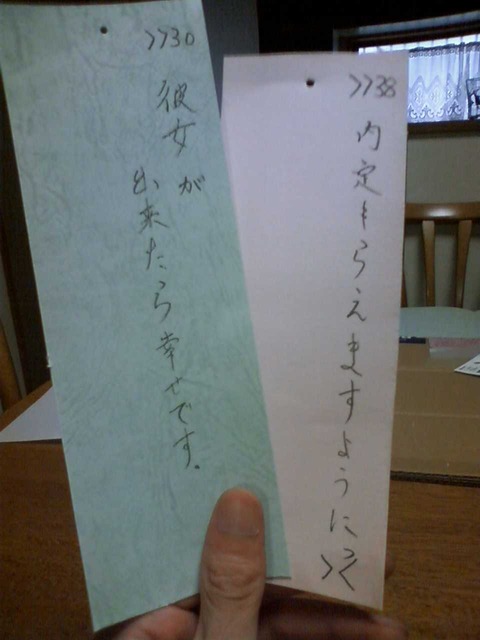 >>30
彼女が
出来たら幸せです。
>>38
内定もらえますように